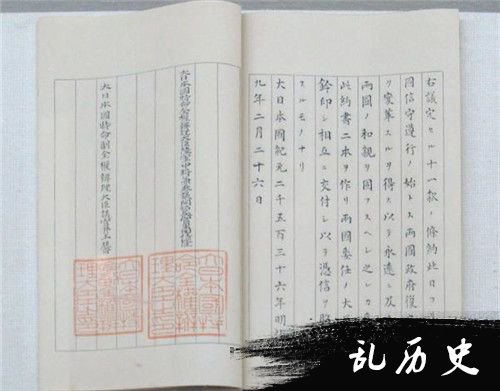 右議定セル十一款ノ條約此日ヨリ
國信守遵行ノ始トス兩國政府復
ヲ變革スルヲ得ス以テ永遠ニ及
兩國ノ和親ヲ固フスヘシ之レカ爲
此約書二本ヲ作リ兩國委任ノ大
鈐印シ相互ニ交付シ以テ憑信ヲ昭
スルモノナリ
大日本國紀元二千五百三十六年明
九年二月二十六日
大日本國特命全權辨理大臣陸軍中將兼參議開拓長官黑田清隆
大日本國特命副全權辨理大臣議官井上馨
乱历史